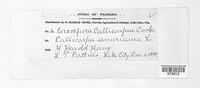 FUNGI OF FLORIDA.
Distributed by H. HAROLD HUME, Florida Agricultural College, Lake City, Fla.
No. 60 Cercospora Callicarpae Cooke
Callicarpa americana L.
H Harold Hume
Lake City, Dec. 6, 1899